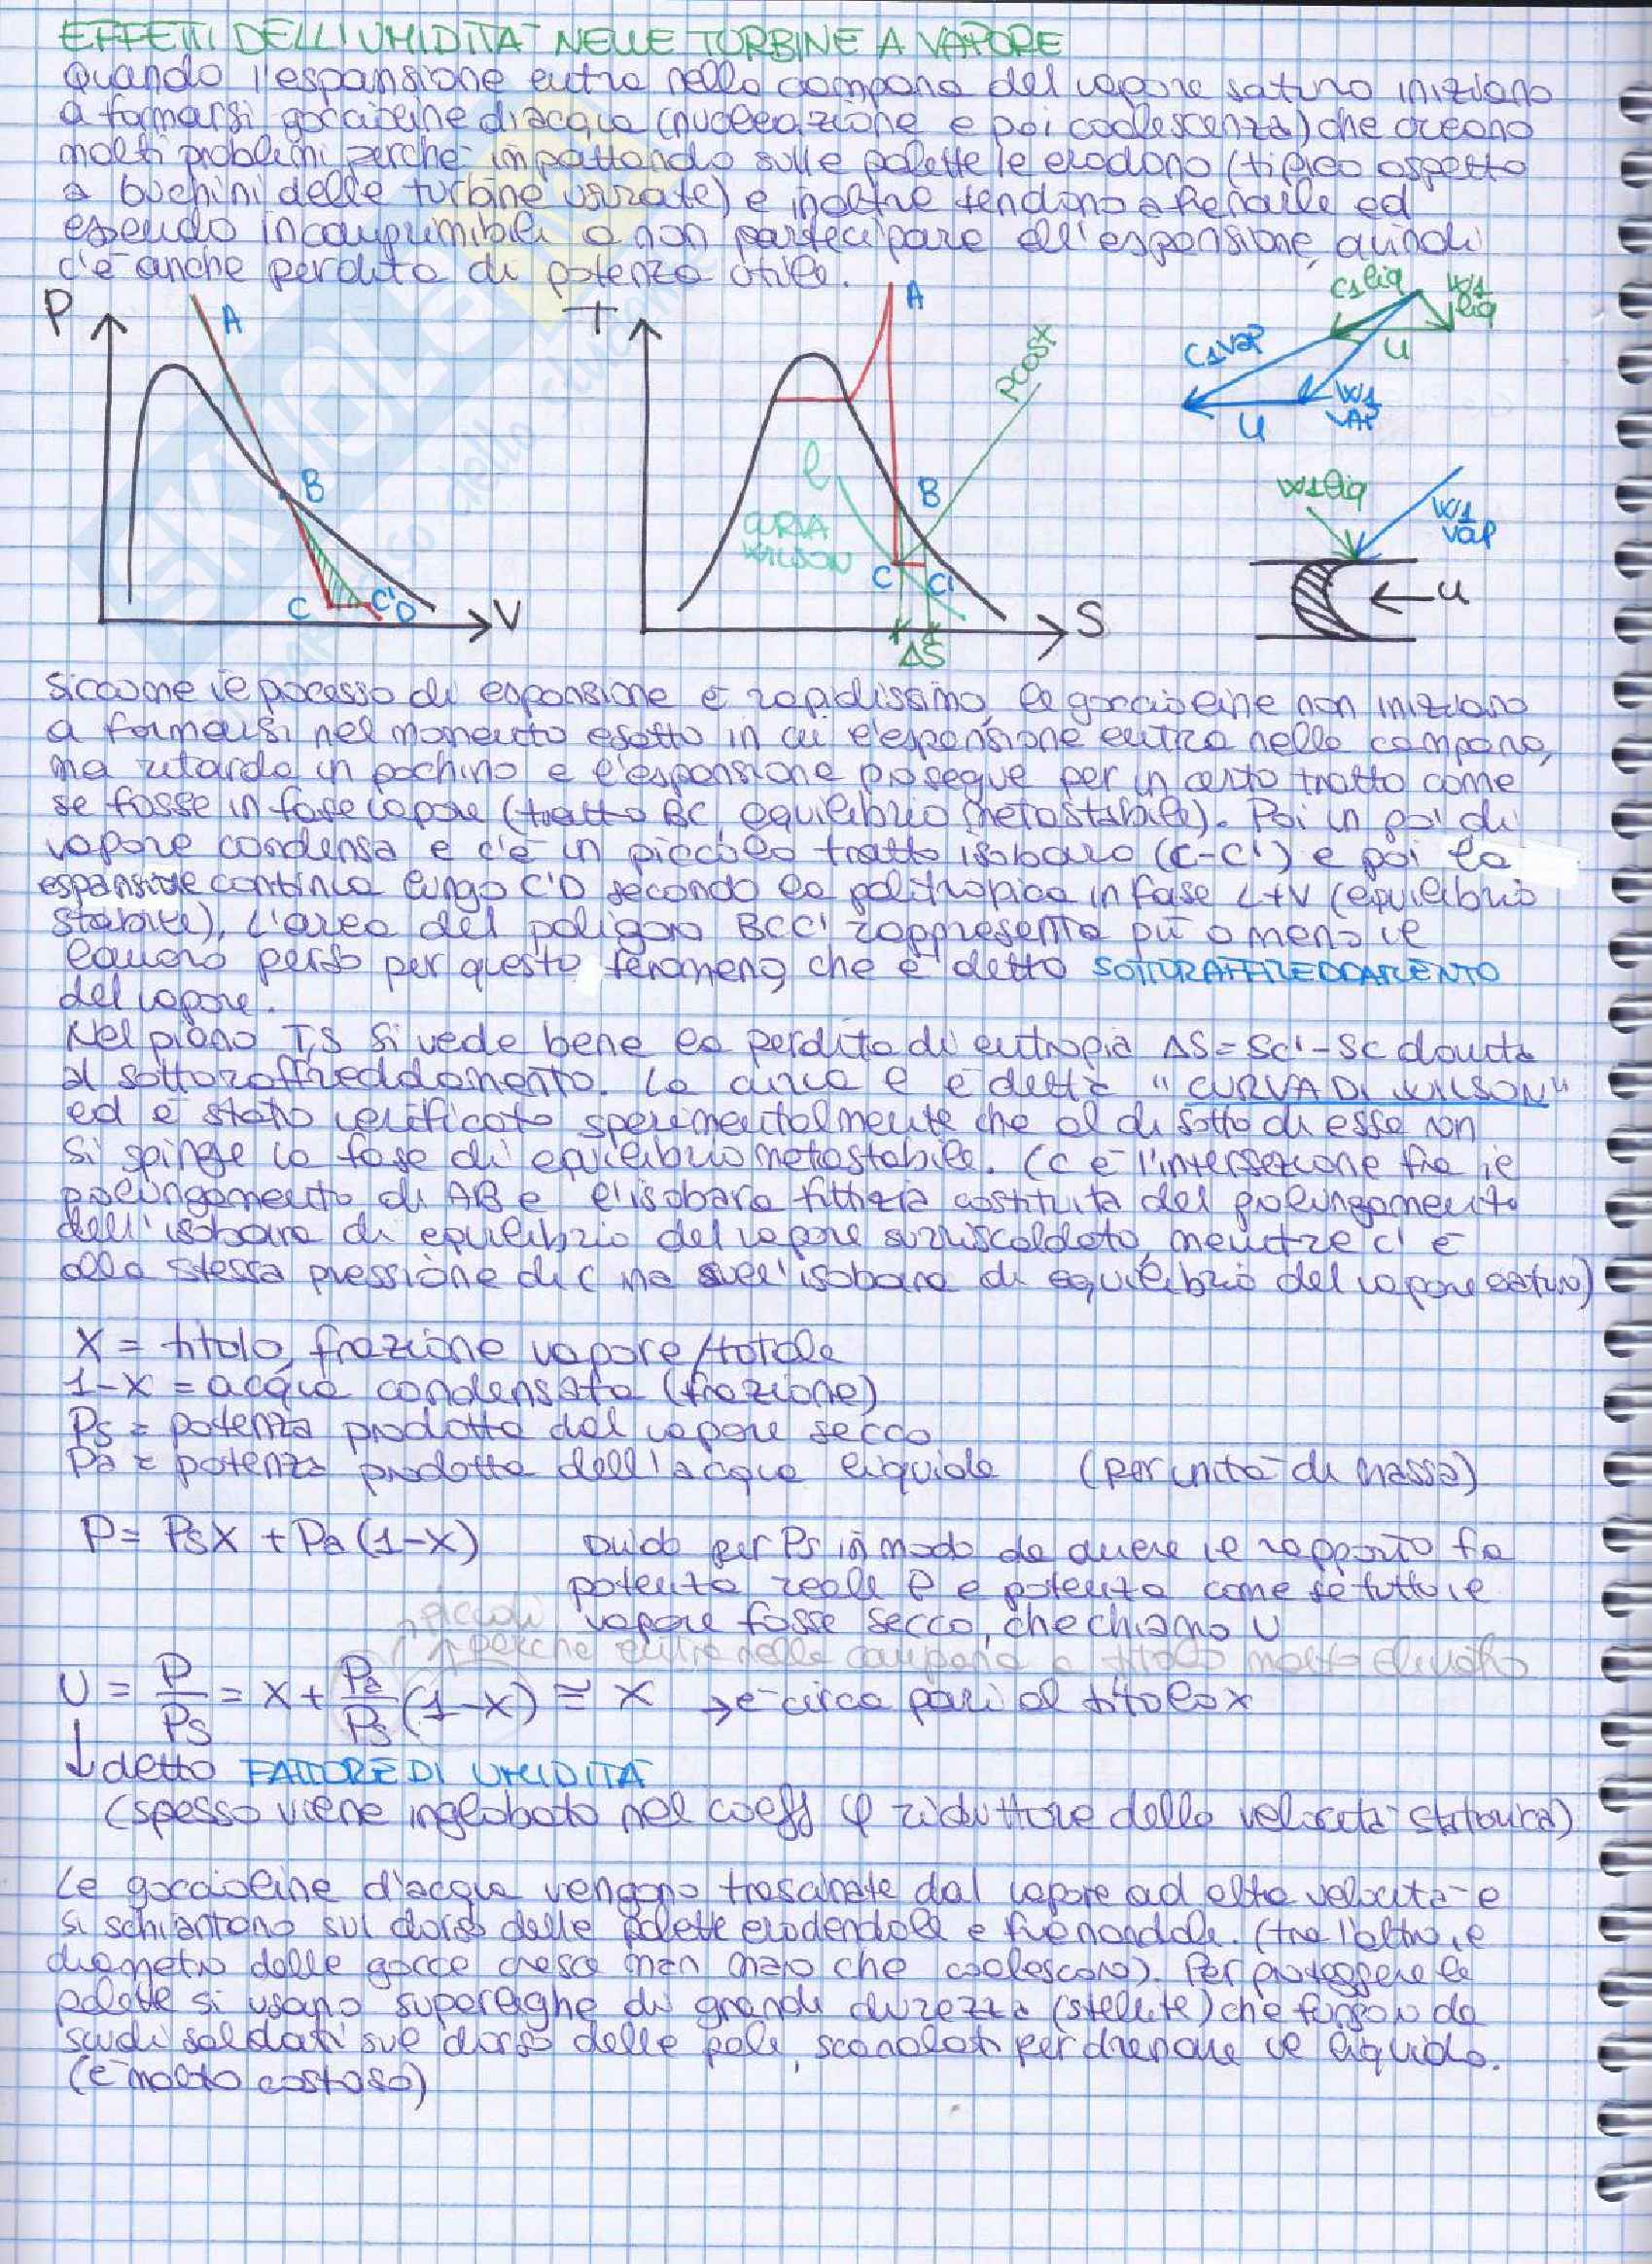 EFFETTI DELL'UMIDITÀ NELLE TURBINE A VAPORE
Quando l'espansione entra nella campana del vapore saturo iniziano
a formarsi goccioline di acqua (nucleazione e poi coalescenza) che creano
molti problemi perché impattando sulle palette le erodono (tipico aspetto
a buchini delle turbine usurate) e inoltre tendono a frenarle ed
essendo incomprimibili a non partecipare all'espansione, quindi
c'è anche perdita di potenza utile.
P
A
B
C
C'
D
V
T
A
Pcost
l
CURVA
WILSON
B
C
C'
ΔS
S
C1 liq
W1
liq
u
C1 vap
W1
VAP
u
W1 liq
W1
vap
u
Siccome il processo di espansione è rapidissimo, le goccioline non iniziano
a formarsi nel momento esatto in cui l'espansione entra nella campana,
ma ritarda un pochino e l'espansione prosegue per un certo tratto come
se fosse in fase vapore (tratto BC, equilibrio metastabile). Poi un po' di
vapore condensa e c'è un piccolo tratto isobaro (C-C') e poi la
espansione continua lungo C'D secondo la politropica in fase L+V (equilibrio
stabile). L'area del poligono BCC' rappresenta più o meno il
lavoro perso per questo fenomeno, che è detto SOTTORAFFREDDAMENTO
del vapore.
Nel piano T,S si vede bene la perdita di entropia ΔS = Sc' - Sc dovuta
al sottoraffreddamento. La curva l è detta "CURVA DI WILSON"
ed è stato verificato sperimentalmente che al di sotto di essa non
si spinge la fase di equilibrio metastabile. (C è l'intersezione fra il
prolungamento di AB e l'isobara fittizia costituita dal prolungamento
dell'isobara di equilibrio del vapore surriscaldato, mentre C' è
alla stessa pressione di C ma sull'isobara di equilibrio del vapore saturo)
X = titolo, frazione vapore/totale
1-X = acqua condensata (frazione)
Ps = potenza prodotta dal vapore secco
Pa = potenza prodotta dall'acqua liquida (per unità di massa)
P = PsX + Pa (1-X)
Divido per Ps in modo da avere il rapporto fra
potenza reale P e potenza come se tutto il
vapore fosse secco, che chiamo U
piccoli
perché entra nella campana a titolo molto elevato
U = P/Ps = X + Pa/Ps (1-X) ≅ X → è circa pari al titolo X
↓ detto FATTORE DI UMIDITÀ
(spesso viene inglobato nel coeff φ riduttore della velocità statorica)
Le goccioline d'acqua vengono trascinate dal vapore ad alta velocità e
si schiantano sul dorso delle palette erodendole e frenandole. (tra l'altro, il
diametro delle gocce cresce man mano che coalescono). Per proteggere le
palette si usano superleghe di grande durezza (stellite) che fungono da
scudi saldati sul dorso delle pale, scanalati per drenare il liquido.
(è molto costoso)